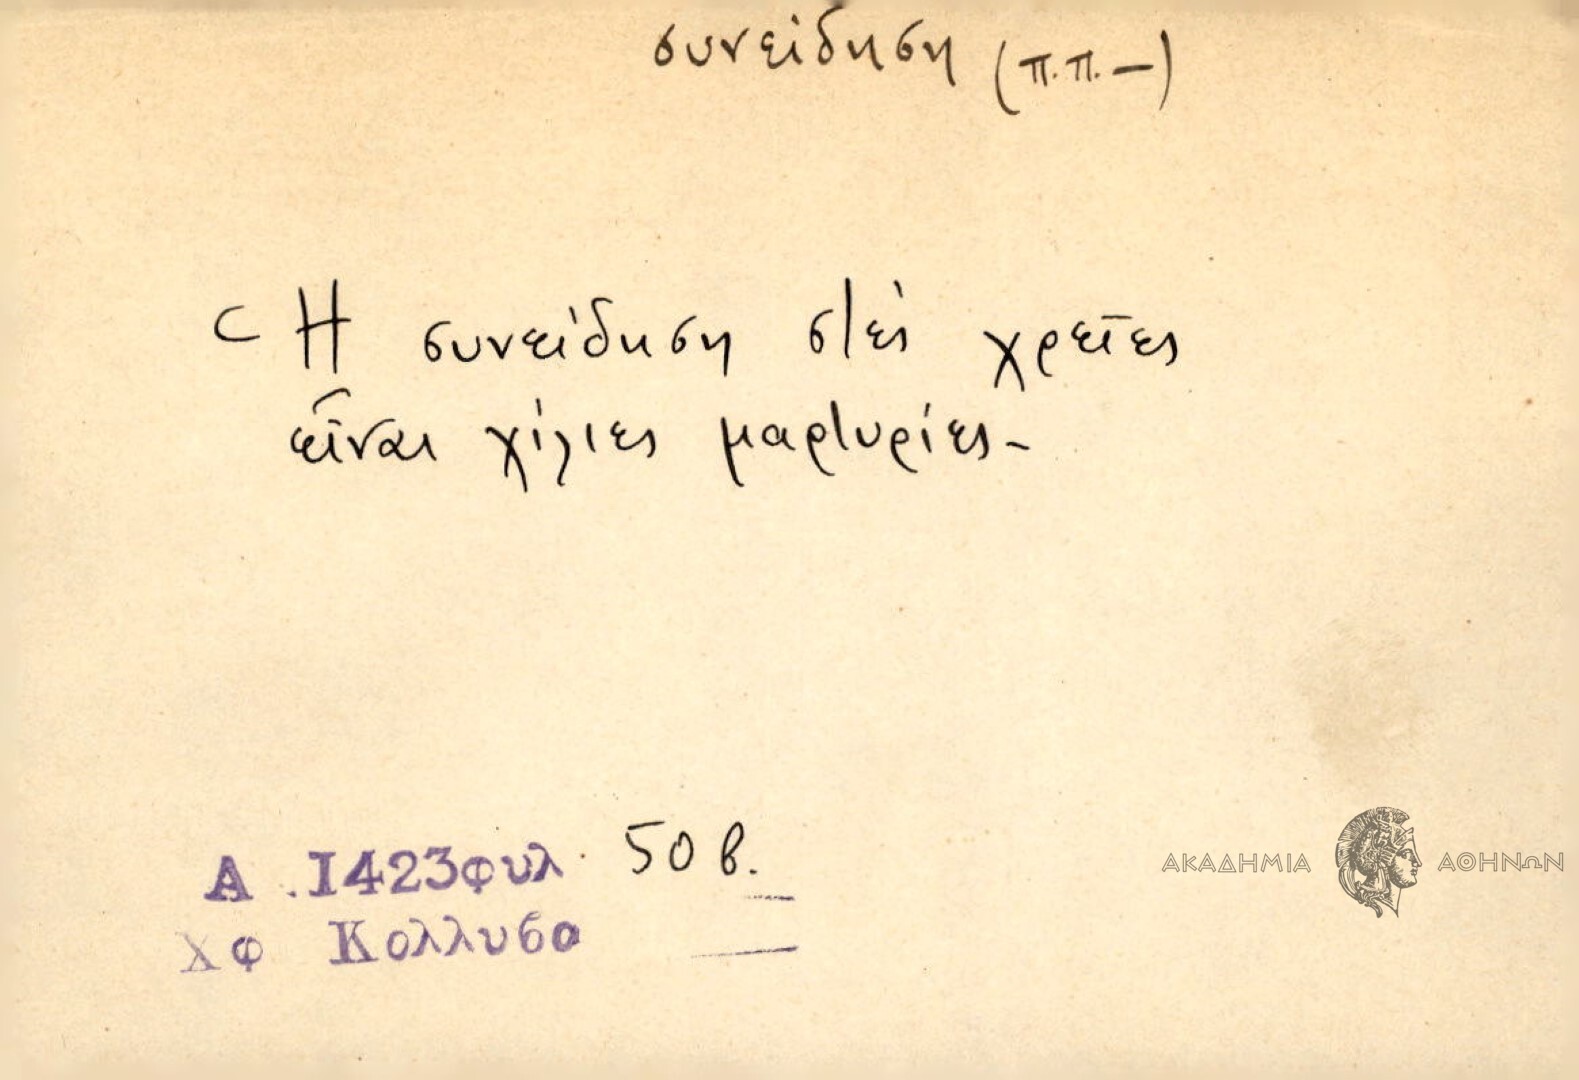 συνείδηση (π.π.—)
Ἡ συνείδηση στὲς χρεῖες
εἶναι χίλιες μαρτυρίες-
Α. 1423 φυλ. 50 β.
Χφ Κολλυβα
ΑΚΑΔΗΜΙΑ ΑΘΗΝΩΝ